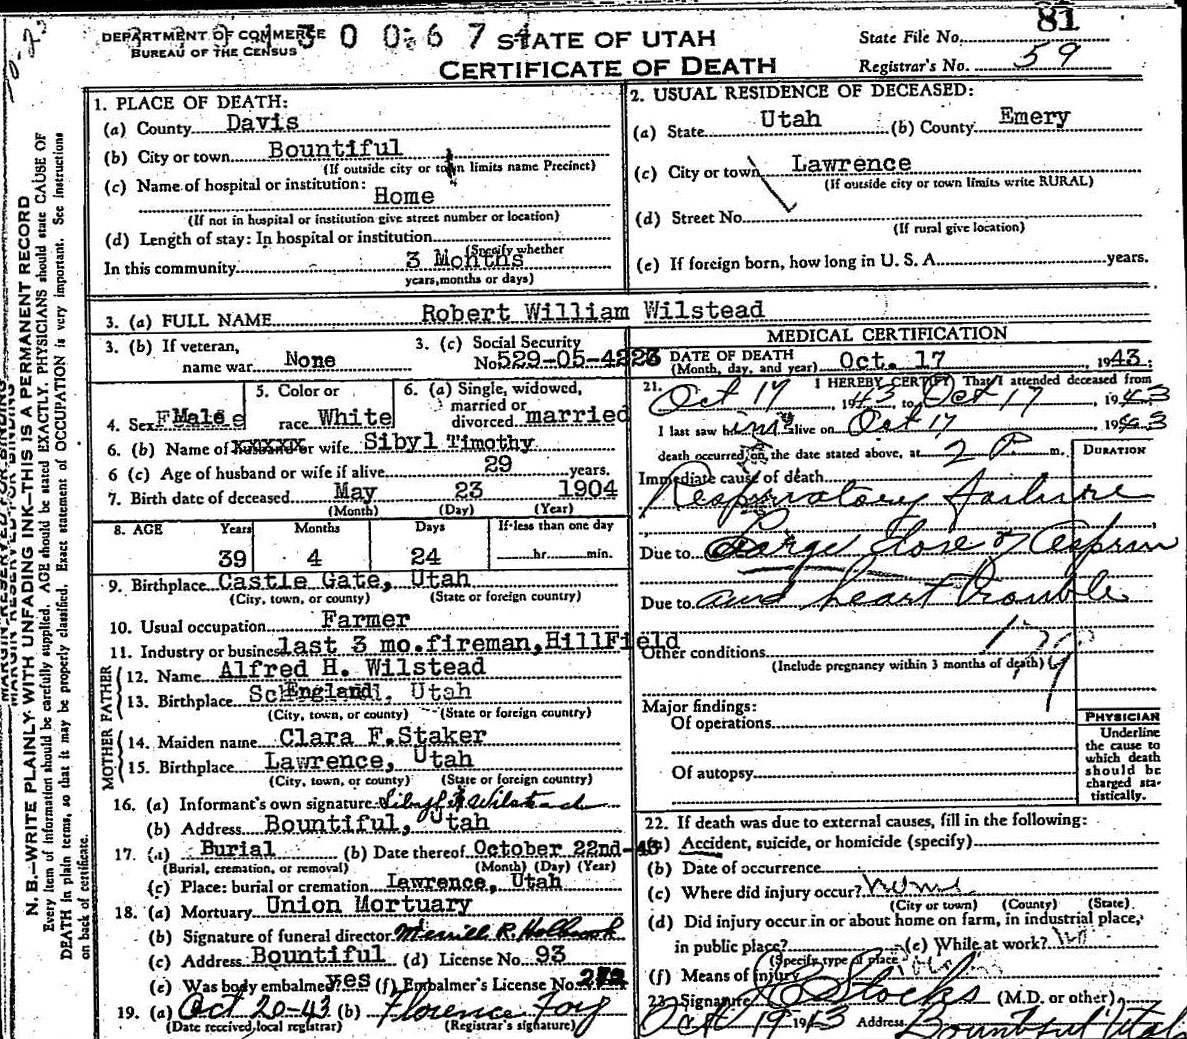 81
DEPARTMENT OF COMMERCE
BUREAU OF THE CENSUS
STATE OF UTAH
CERTIFICATE OF DEATH
State File No.
Registrar's No. 59
N. B.—WRITE PLAINLY WITH UNFADING INK—THIS IS A PERMANENT RECORD
Every item of information should be carefully supplied. AGE should be stated EXACTLY. PHYSICIANS should state CAUSE OF
DEATH in plain terms, so that it may be properly classified. Exact statement of OCCUPATION is very important. See instructions
on back of certificate.
1. PLACE OF DEATH:
(a) County Davis
(b) City or town Bountiful
(If outside city or town limits name Precinct)
(c) Name of hospital or institution:
Home
(If not in hospital or institution give street number or location)
(d) Length of stay: In hospital or institution
(Specify whether
In this community 3 Months
years, months or days)
2. USUAL RESIDENCE OF DECEASED:
(a) State Utah (b) County Emery
(c) City or town Lawrence
(If outside city or town limits write RURAL)
(d) Street No.
(If rural give location)
(e) If foreign born, how long in U. S. A. years.
3. (a) FULL NAME Robert William Wilstead
3. (b) If veteran,
name war None
3. (c) Social Security
No. 529-05-4223
4. Sex Male
5. Color or
race White
6. (a) Single, widowed,
married or
divorced married
6. (b) Name of husband or wife Sibyl Timothy
6 (c) Age of husband or wife if alive 29 years.
7. Birth date of deceased May 23 1904
(Month) (Day) (Year)
8. AGE Years Months Days If less than one day
39 4 24 hr. min.
9. Birthplace Castle Gate, Utah
(City, town, or county) (State or foreign country)
10. Usual occupation Farmer
11. Industry or business last 3 mo. fireman, Hill Field
MOTHER FATHER
12. Name Alfred H. Wilstead
13. Birthplace England, Utah
(City, town, or county) (State or foreign country)
14. Maiden name Clara F. Staker
15. Birthplace Lawrence, Utah
(City, town, or county) (State or foreign country)
16. (a) Informant's own signature Wilstead
(b) Address Bountiful, Utah
17. (a) Burial (b) Date thereof October 22nd-43
(Burial, cremation, or removal) (Month) (Day) (Year)
(c) Place: burial or cremation Lawrence, Utah
18. (a) Mortuary Union Mortuary
(b) Signature of funeral director Merrill R. Holbrook
(c) Address Bountiful (d) License No. 93
(e) Was body embalmed? yes (f) Embalmer's License No.
19. (a) Oct 20-43 (b) Florence Foy
(Date received local registrar) (Registrar's signature)
MEDICAL CERTIFICATION
DATE OF DEATH
(Month, day, and year) Oct. 17, 1943;
21. I HEREBY CERTIFY That I attended deceased from
Oct 17, 1943 to Oct 17, 1943
I last saw him alive on Oct 17 1943
death occurred on the date stated above, at 2 P. m.
DURATION
Immediate cause of death
Respiratory failure
Due to Large dose of Asprin
Due to and heart trouble
Other conditions
(Include pregnancy within 3 months of death)
Major findings:
Of operations
Of autopsy
PHYSICIAN
Underline
the cause to
which death
should be
charged sta-
tistically.
22. If death was due to external causes, fill in the following:
(a) Accident, suicide, or homicide (specify)
(b) Date of occurrence
(c) Where did injury occur? home
(City or town) (County) (State)
(d) Did injury occur in or about home on farm, in industrial place,
in public place? (e) While at work? no
(Specify type of place)
(f) Means of injury
23. Signature Stocks (M.D. or other)
Oct 19 1943 Address Bountiful Utah